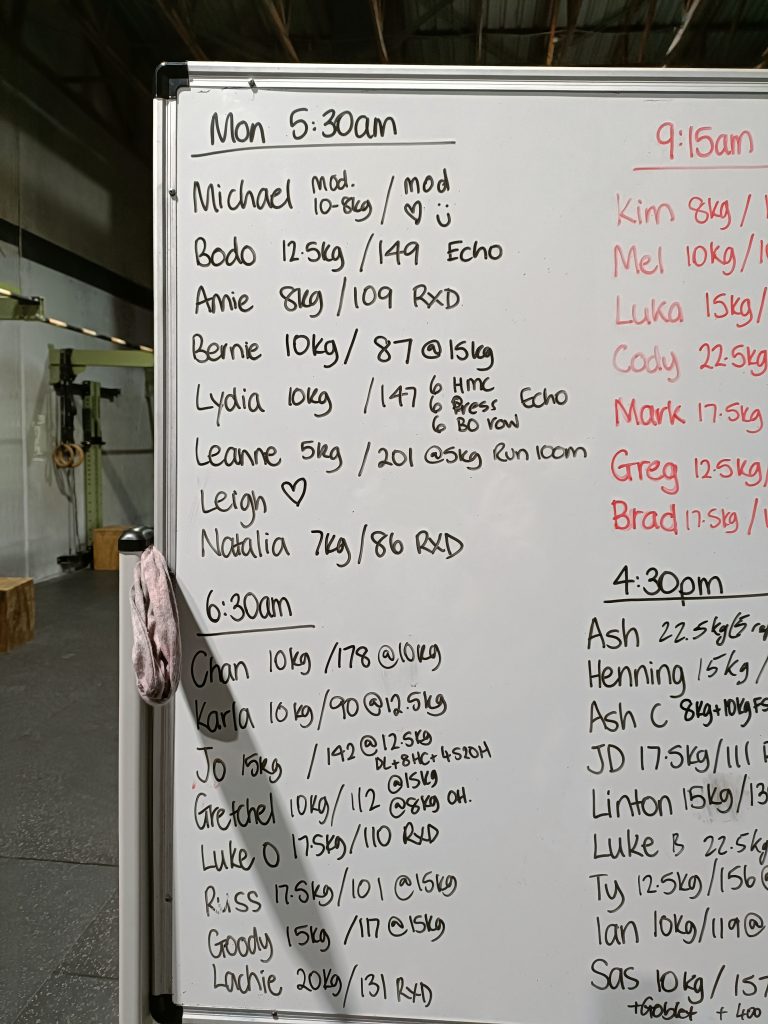 Mon 5:30am
Michael mod. 10-8kg / mod ♡ ü
Bodo 12.5kg /149 Echo
Amie 8kg /109 RxD
Bernie 10kg/ 87 @15kg
Lydia 10kg /147 6 HMC 6 Press 6 BO row Echo
Leanne 5kg /201 @5kg Run 100m
Leigh ♡
Natalia 7kg/86 RxD
6:30am
Chan 10kg /178 @10kg
Karla 10kg/90@12.5kg
Jo 15kg /142@12.5kg
DL+8HC+4S2OH
Gretchel 10kg/112 @15kg @8kg OH.
Luke O 17.5kg/110 RxD
Russ 17.5kg/101 @15kg
Goody 15kg /117@15kg
Lachie 20kg/131 RxD
9:15am
Kim 8kg /
Mel 10kg/
Luka 15kg/
Cody 22.5kg
Mark 17.5kg
Greg 12.5kg/
Brad 17.5kg /
4:30pm
Ash 22.5kg(5
Henning 15kg /
Ash C 8kg+10kgFS
JD 17.5kg/111
Linton 15kg/13
Luke B 22.5kg
Ty 12.5kg/156@
Ian 10kg/119@
Sas 10kg/157
+Goblet + 400